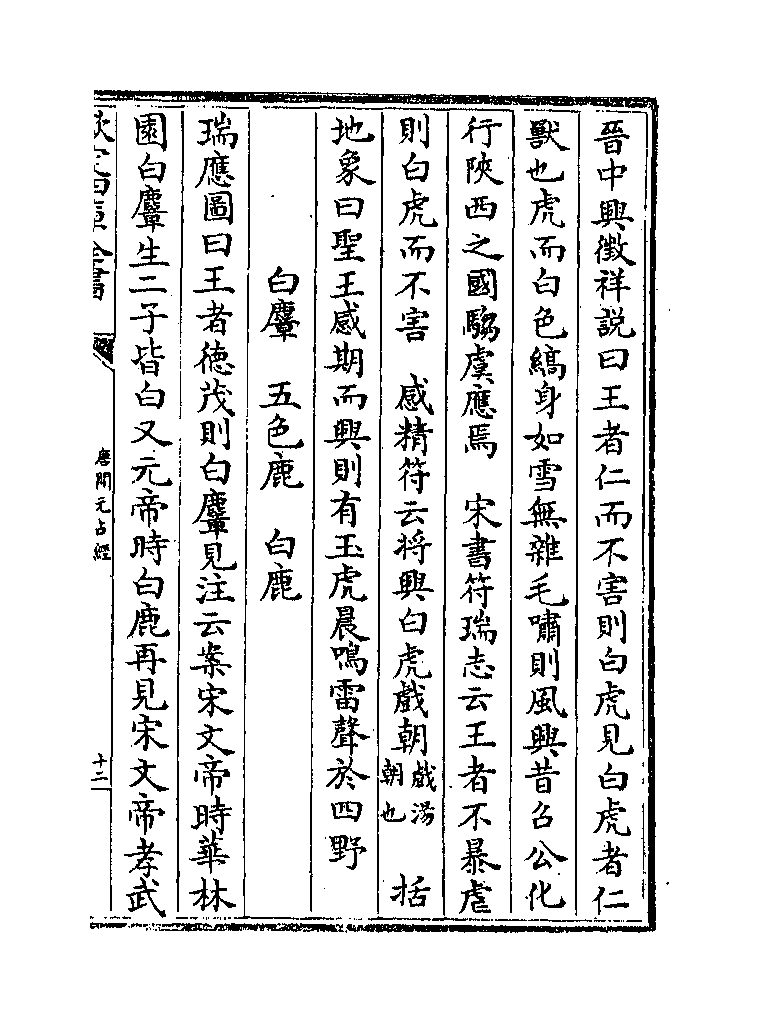 晉中興徴祥説曰王者仁而不害則白虎見白虎者仁
獸也虎而白色縞身如雪無雜毛嘯則風興昔召公化
行陜西之國騶虞應焉　宋書符瑞志云王者不暴虐
則白虎而不害　感精符云将興白虎戲朝戲湯朝也　括
地象曰聖王感期而興則有玉虎晨鳴雷聲於四野
白麞　五色鹿　白鹿
瑞應圖曰王者徳茂則白麞見注云案宋文帝時華林
園白麞生二子皆白又元帝時白鹿再見宋文帝孝武
欽定四庫全書
唐開元占經
十二